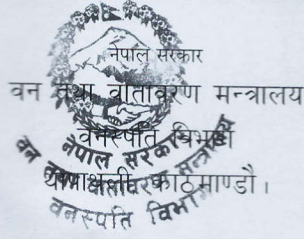 नेपाल सरकार
वन तथा वातावरण मन्त्रालय
वनस्पति विभाग
थापाथली, काठमाण्डौ।
नेपाल सरकार
वन तथा वातावरण मन्त्रालय
वनस्पति विभाग